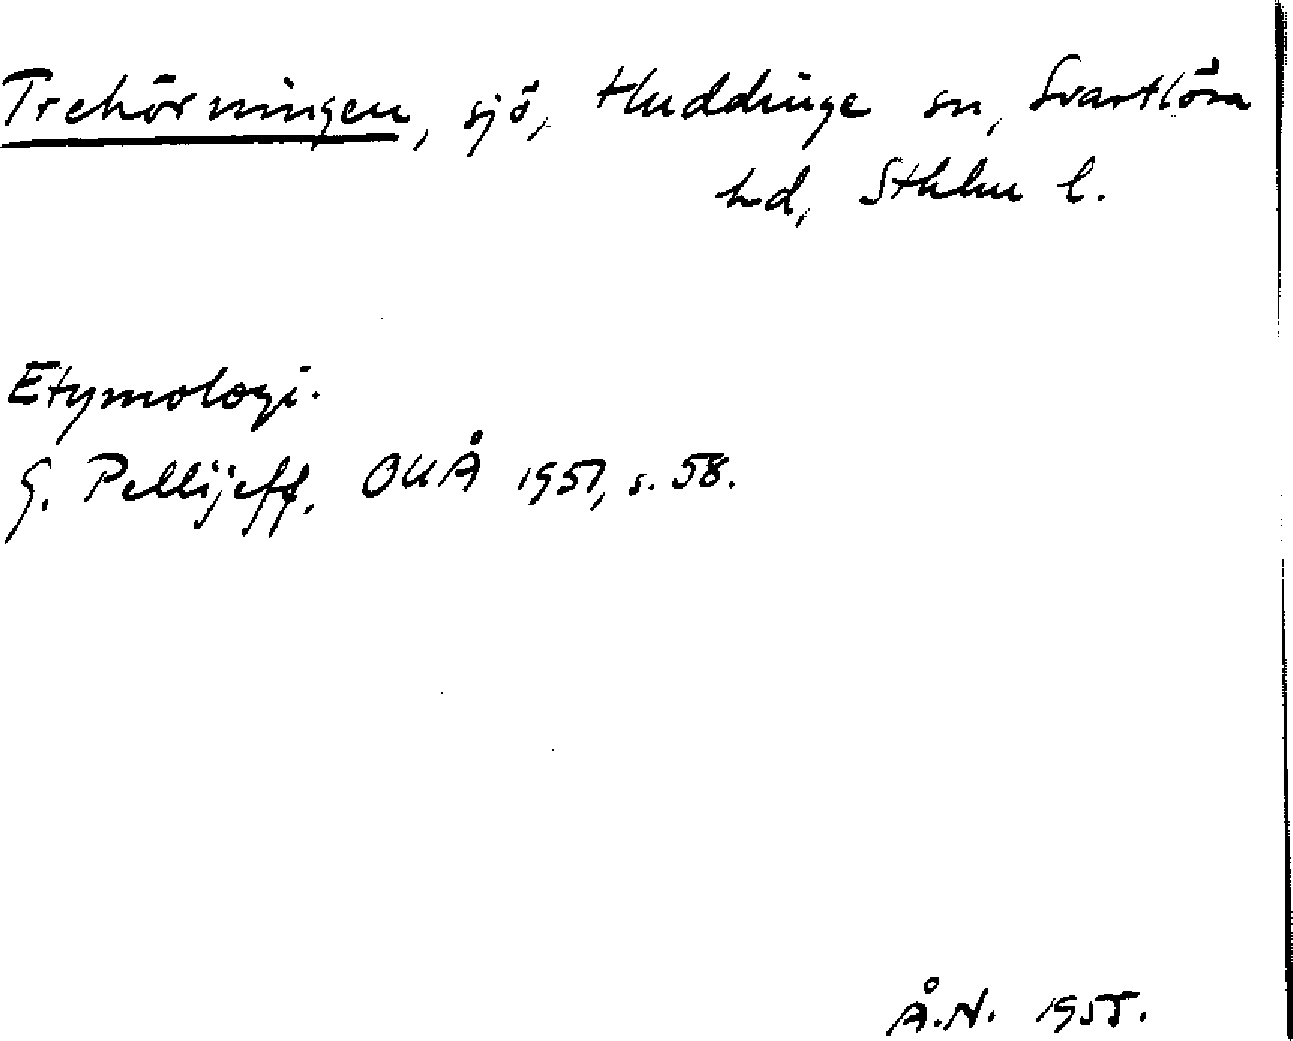 Trehörningen, sjö, Huddinge sn, Svartlösa
hd, Sthlm l.
Etymologi.
G. Pellijeff, OUÅ 1951, s. 58.
Å.N. 1955.